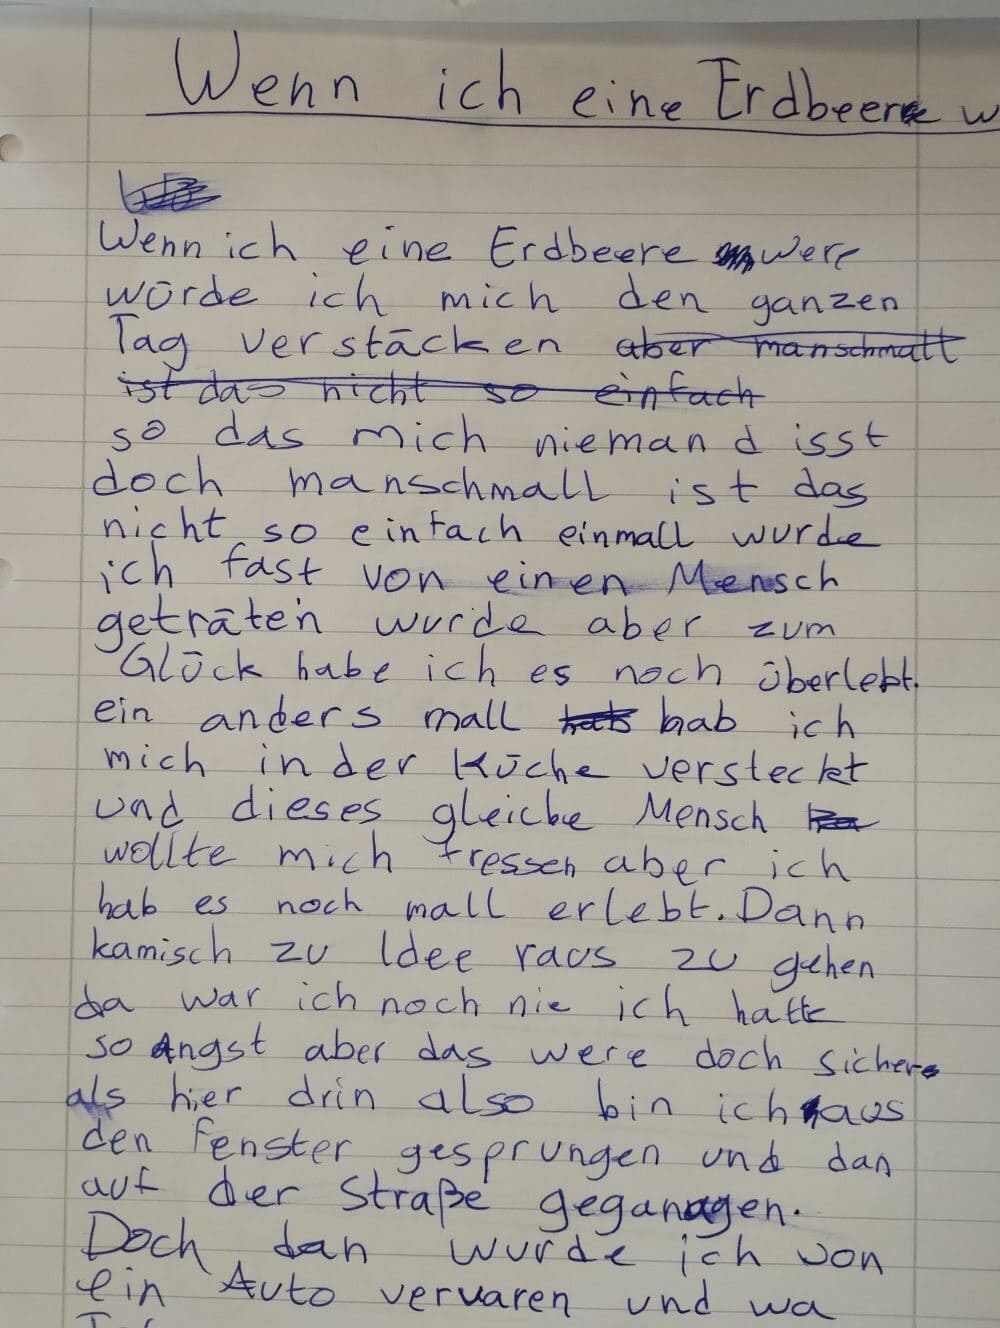 Wenn ich eine Erdbeere w
Wenn ich eine Erdbeere were
würde ich mich den ganzen
Tag verstäcken aber manschmall
ist das nicht so einfach
so das mich niemand isst
doch manschmall ist das
nicht so einfach einmall wurde
ich fast von einen Mensch
geträten wurde aber zum
Glück habe ich es noch überlebt.
ein anders mall hab ich
mich in der Küche versteckt
und dieses gleiche Mensch
wollte mich fressen aber ich
hab es noch mall erlebt. Dann
kamisch zu Idee raus zu gehen
da war ich noch nie ich hatte
so Angst aber das were doch sicher
als hier drin also bin ich aus
den Fenster gesprungen und dan
auf der Straße gegangen.
Doch dan wurde ich von
ein Auto vervaren und wa